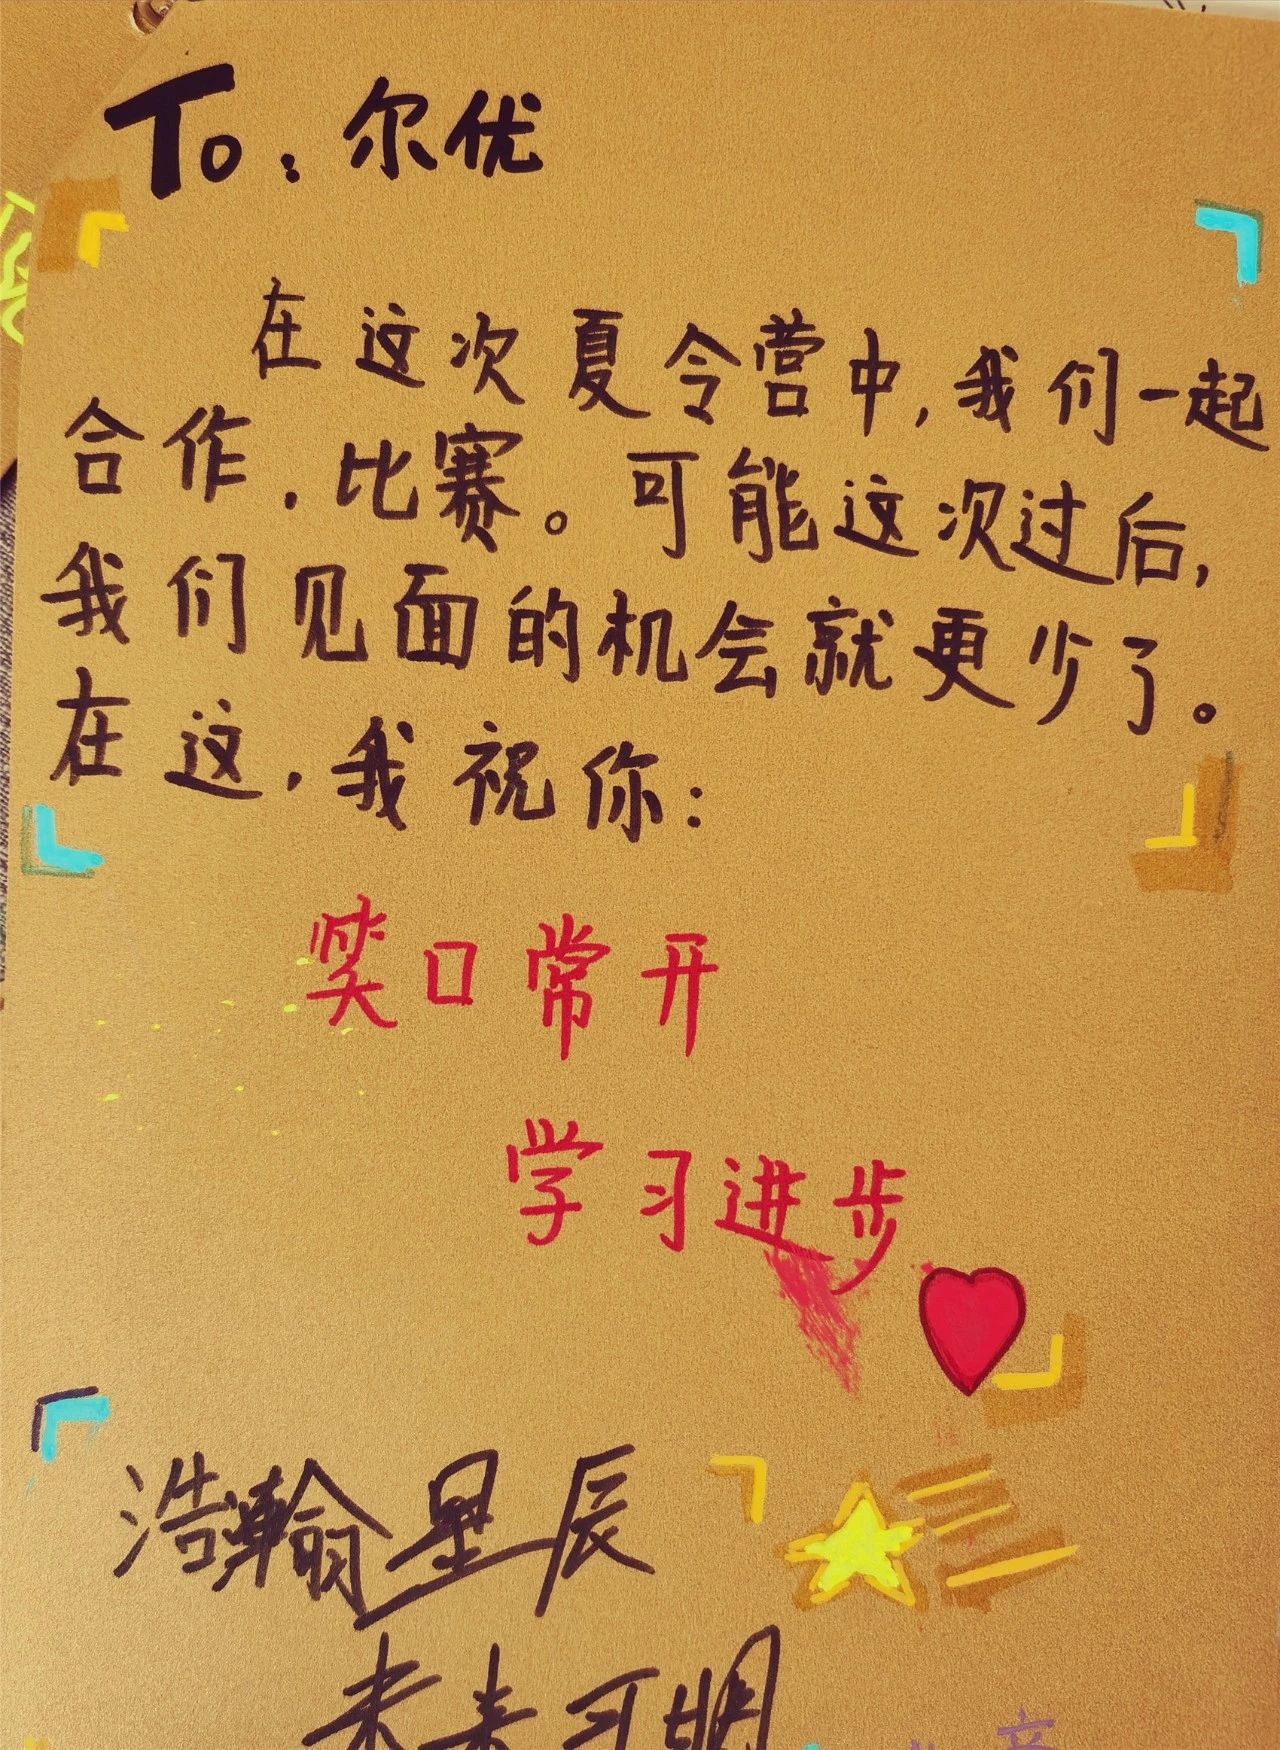 To：尔优
在这次夏令营中,我们一起
合作.比赛。可能这次过后,
我们见面的机会就更少了。
在这,我祝你:
笑口常开
学习进步
浩瀚星辰
未来可期